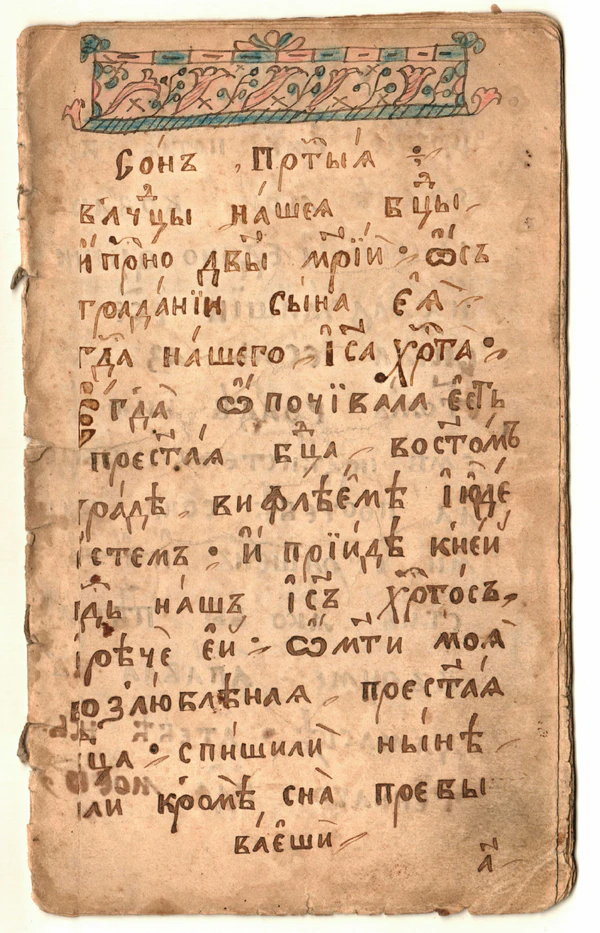 Со́нъ , Прⷭ҇тыѧ :
влⷣчцы на́шеѧ бⷣцы
и҆ прⷭ҇но дв҃ы мр҃їи ѿсъ
трада́нїи сы́на є҆ѧ̀
гдⷭ҇а на́шего і҆с҃а хрⷭ҇та
Егда̀ ѿпочївала є҆сть
прест҃аѧ бⷣца востомъ
гра́дѣ вифлѣє́мѣ і҆ю҆де
істемъ и҆ прїи́де кне́и
гдⷭ҇ь нашъ і҆с҃ъ хрⷭ҇то́съ
ірѣче є҆́й ѽмт҃и моѧ̀
возлюбле́наѧ прест҃аѧ
бцⷣа спи́шили ны́нѣ
или кромѣ сна̀ превы
ва́єши
а҃